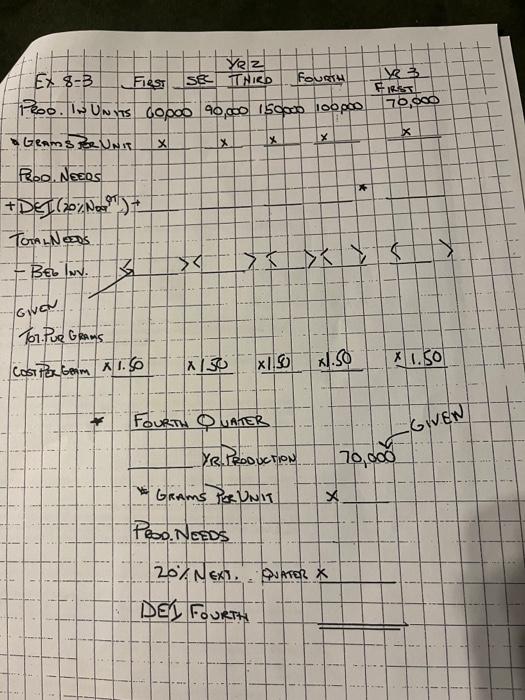 YR 2
EX 8-3 FIRST SEC THIRD FOURTH YR 3
FIRST
PROD. IN UNITS 60,000 90,000 150,000 100,000 70,000
* GRAMS PER UNIT x x x x x
PROD. NEEDS
*
+ DEI (20% Next QT) +
TOTAL NEEDS
- BEG INV. < > < > < > < > < >
GIVEN
TOT. PUR GRAMS
COST PER GRAM x 1.50 x 1.50 x 1.50 x 1.50 x 1.50
* FOURTH QUATER
GIVEN
YR. PRODUCTION 70,000
* GRAMS PER UNIT x
PROD. NEEDS
20% NEXT. QUATER x
DEI FOURTH